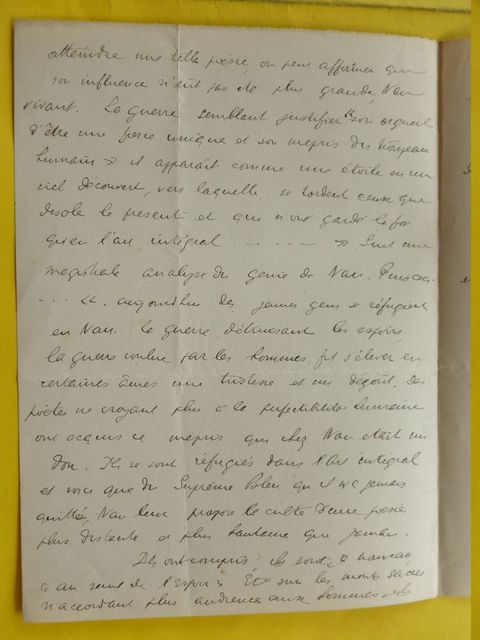 atteindre une telle poésie, on peut affirmer que
son influence n'eut pas été plus grande, Nau
vivant. La guerre semblant justifier son orgueil
d'être une force unique et son mépris du troupeau
humain » il apparaît comme une étoile en un
ciel découvert, vers laquelle se tordent ceux que
désole le présent et qui n'ont gardé la foi
qu'en l'art intégral - - - - - » Suit une
magistrale analyse du génie de Nau. Puis ces
- - - « aujourd'hui des jeunes gens se réfugient
en Nau. La guerre détruisant les espoirs,
la guerre voulue par les hommes, fit s'élever en
certaines âmes une tristesse et un dégoût. Les
poètes ne croyant plus à la perfectibilité humaine
ont acquis ce mépris qui chez Nau était un
don. Ils se sont réfugiés dans l'Art intégral
et voici que du Suprême Bleu qu'il n'a jamais
quitté, Nau leur propose le culte d'une poésie
plus distante et plus hautaine que jamais.
Ils ont compris; ils sont à nouveau
« au seuil de l'Espoir » Et sur les monts sacrés
n'accordant plus audience aux hommes, ils